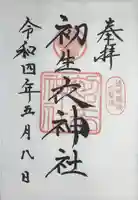 奉拝
初生衣神社
令和四年五月八日